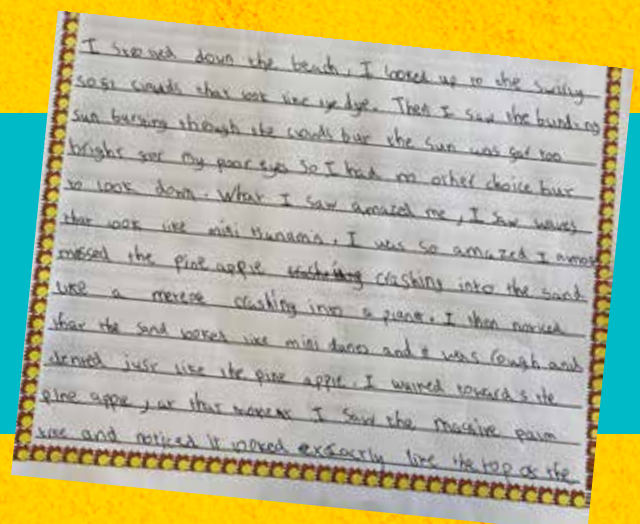 I down the beach, I looked up to the
sofi clouds that look like tye dye. Then I saw the blinding
sun bursing through the clouds but the sun was far too
bright for my poor eyes so I had no other choice but
to look down. What I saw amazed me, I saw waves
that look like mini tsunamis, I was so amazed I
missed the pine apple crashing into the sand
like a crashing into a plane. I then noticed
that the sand looked like mini and it was rough and
just like the pine apple. I walked towards the
pine apple, at that moment I saw the massive palm
tree and noticed it looked like the top of the